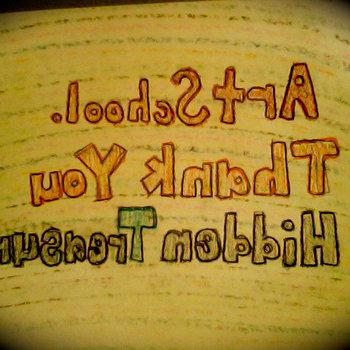 Art School.
Thank You
Hidden Treasur